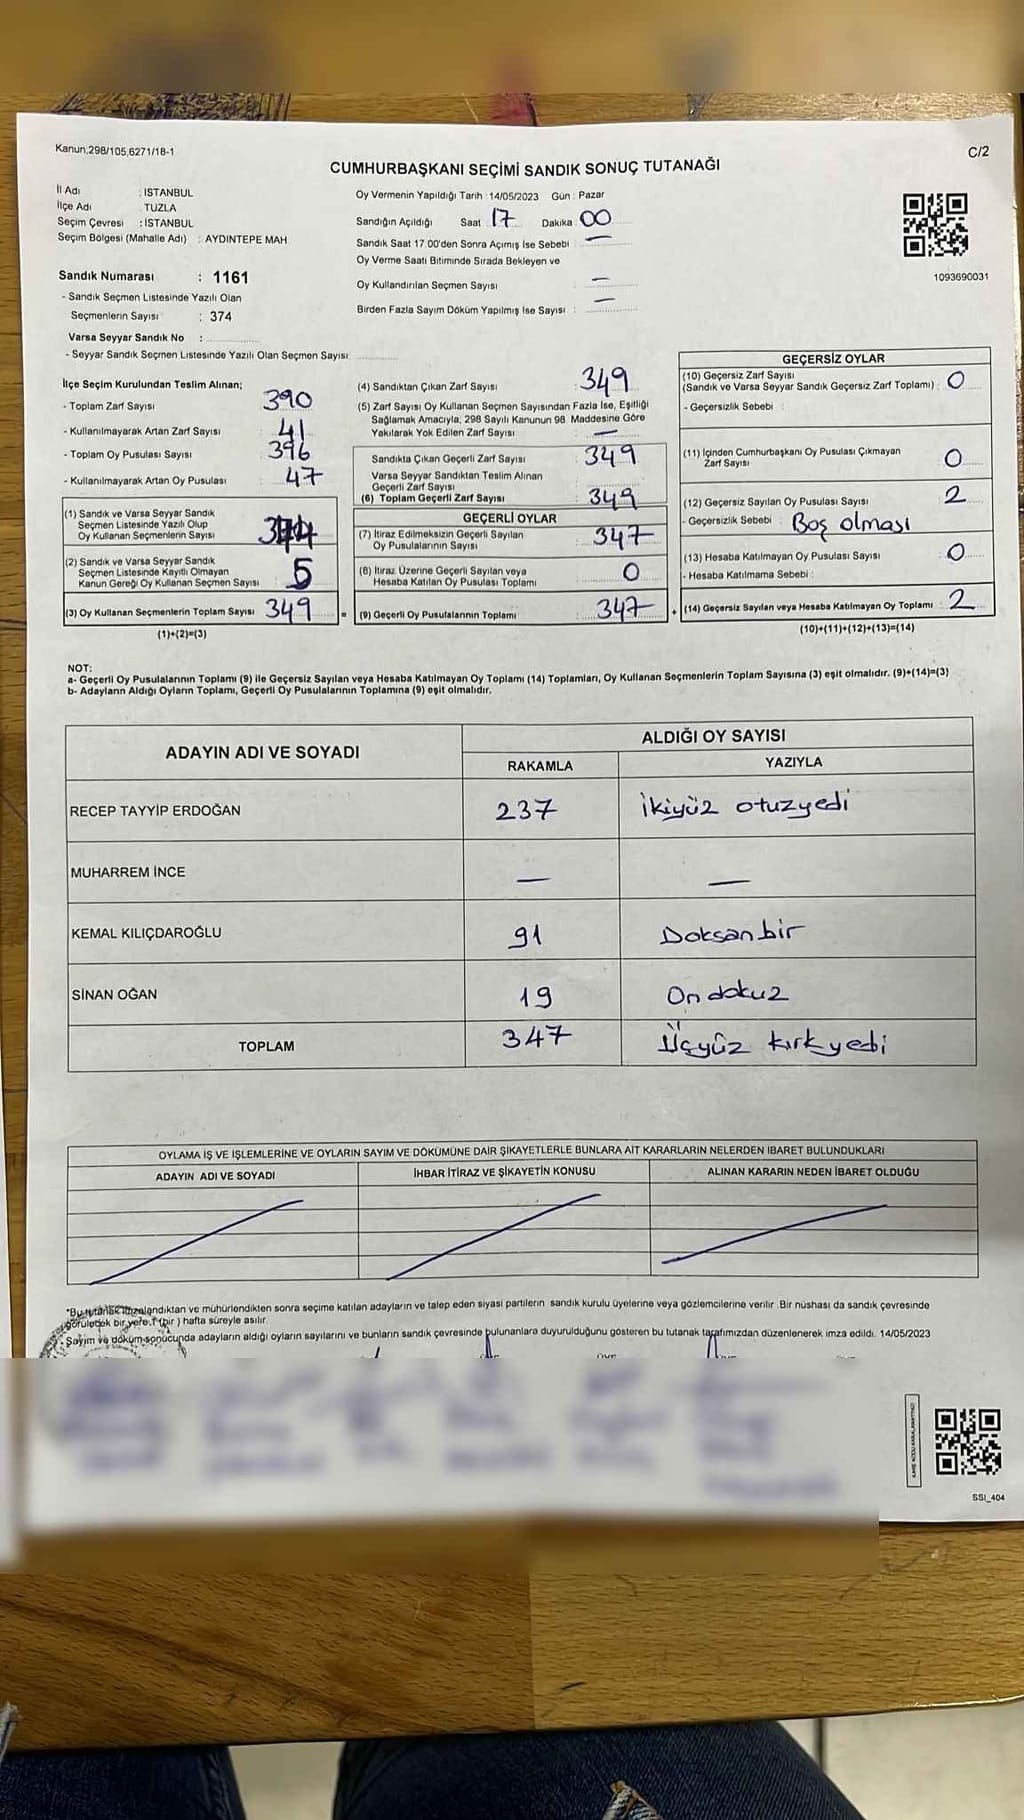 Kanun,298/105,6271/18-1
C/2
CUMHURBAŞKANI SEÇİMİ SANDIK SONUÇ TUTANAĞI
İl Adı : ISTANBUL
İlçe Adı : TUZLA
Seçim Çevresi : İSTANBUL
Seçim Bölgesi (Mahalle Adı) : AYDINTEPE MAH
Sandık Numarası : 1161
- Sandık Seçmen Listesinde Yazılı Olan
Seçmenlerin Sayısı : 374
Varsa Seyyar Sandık No :
- Seyyar Sandık Seçmen Listesinde Yazılı Olan Seçmen Sayısı
Oy Vermenin Yapıldığı Tarih : 14/05/2023 Gün : Pazar
Sandığın Açıldığı Saat 17 Dakika 00
Sandık Saat 17.00'den Sonra Açımış İse Sebebi : —
Oy Verme Saati Bitiminde Sırada Bekleyen ve
Oy Kullandırılan Seçmen Sayısı : —
Birden Fazla Sayım Döküm Yapılmış İse Sayısı : —
1093690031
İlçe Seçim Kurulundan Teslim Alınan;
- Toplam Zarf Sayısı 390
- Kullanılmayarak Artan Zarf Sayısı 41
- Toplam Oy Pusulası Sayısı 396
- Kullanılmayarak Artan Oy Pusulası 47
(1) Sandık ve Varsa Seyyar Sandık
Seçmen Listesinde Yazılı Olup
Oy Kullanan Seçmenlerin Sayısı
(2) Sandık ve Varsa Seyyar Sandık
Seçmen Listesinde Kayıtlı Olmayan
Kanun Gereği Oy Kullanan Seçmen Sayısı 5
(3) Oy Kullanan Seçmenlerin Toplam Sayısı 349 =
(1)+(2)=(3)
(4) Sandıktan Çıkan Zarf Sayısı : 349
(5) Zarf Sayısı Oy Kullanan Seçmen Sayısından Fazla İse, Eşitliği
Sağlamak Amacıyla; 298 Sayılı Kanunun 98. Maddesine Göre
Yakılarak Yok Edilen Zarf Sayısı : —
Sandıkta Çıkan Geçerli Zarf Sayısı : 349
Varsa Seyyar Sandıktan Teslim Alınan
Geçerli Zarf Sayısı :
(6) Toplam Geçerli Zarf Sayısı : 349
GEÇERLİ OYLAR
(7) İtiraz Edilmeksizin Geçerli Sayılan
Oy Pusulalarının Sayısı : 347
(8) İtiraz Üzerine Geçerli Sayılan veya
Hesaba Katılan Oy Pusulası Toplamı : 0
(9) Geçerli Oy Pusulalarının Toplamı : 347 +
GEÇERSİZ OYLAR
(10) Geçersiz Zarf Sayısı
(Sandık ve Varsa Seyyar Sandık Geçersiz Zarf Toplamı) : 0
- Geçersizlik Sebebi :
(11) İçinden Cumhurbaşkanı Oy Pusulası Çıkmayan
Zarf Sayısı : 0
(12) Geçersiz Sayılan Oy Pusulası Sayısı : 2
- Geçersizlik Sebebi : Boş olması
(13) Hesaba Katılmayan Oy Pusulası Sayısı : 0
- Hesaba Katılmama Sebebi :
(14) Geçersiz Sayılan veya Hesaba Katılmayan Oy Toplamı : 2
(10)+(11)+(12)+(13)=(14)
NOT:
a- Geçerli Oy Pusulalarının Toplamı (9) ile Geçersiz Sayılan veya Hesaba Katılmayan Oy Toplamı (14) Toplamları, Oy Kullanan Seçmenlerin Toplam Sayısına (3) eşit olmalıdır. (9)+(14)=(3)
b- Adayların Aldığı Oyların Toplamı, Geçerli Oy Pusulalarının Toplamına (9) eşit olmalıdır.
ADAYIN ADI VE SOYADI
ALDIĞI OY SAYISI
RAKAMLA YAZIYLA
RECEP TAYYİP ERDOĞAN 237 İkiyüz otuzyedi
MUHARREM İNCE — —
KEMAL KILIÇDAROĞLU 91 Doksanbir
SİNAN OĞAN 19 On dokuz
TOPLAM 347 Üçyüz kırkyedi
OYLAMA İŞ VE İŞLEMLERİNE VE OYLARIN SAYIM VE DÖKÜMÜNE DAİR ŞİKAYETLERLE BUNLARA AİT KARARLARIN NELERDEN İBARET BULUNDUKLARI
ADAYIN ADI VE SOYADI İHBAR İTİRAZ VE ŞİKAYETİN KONUSU ALINAN KARARIN NEDEN İBARET OLDUĞU
*Bu tutanak imzalandıktan ve mühürlendikten sonra seçime katılan adayların ve talep eden siyasi partilerin sandık kurulu üyelerine veya gözlemcilerine verilir .Bir nüshası da sandık çevresinde
görülecek bir yere 1 (bir ) hafta süreyle asılır.
Sayım ve döküm sonucunda adayların aldığı oyların sayılarını ve bunların sandık çevresinde bulunanlara duyurulduğunu gösteren bu tutanak tarafımızdan düzenlenerek imza edildi. 14/05/2023
SSİ_404